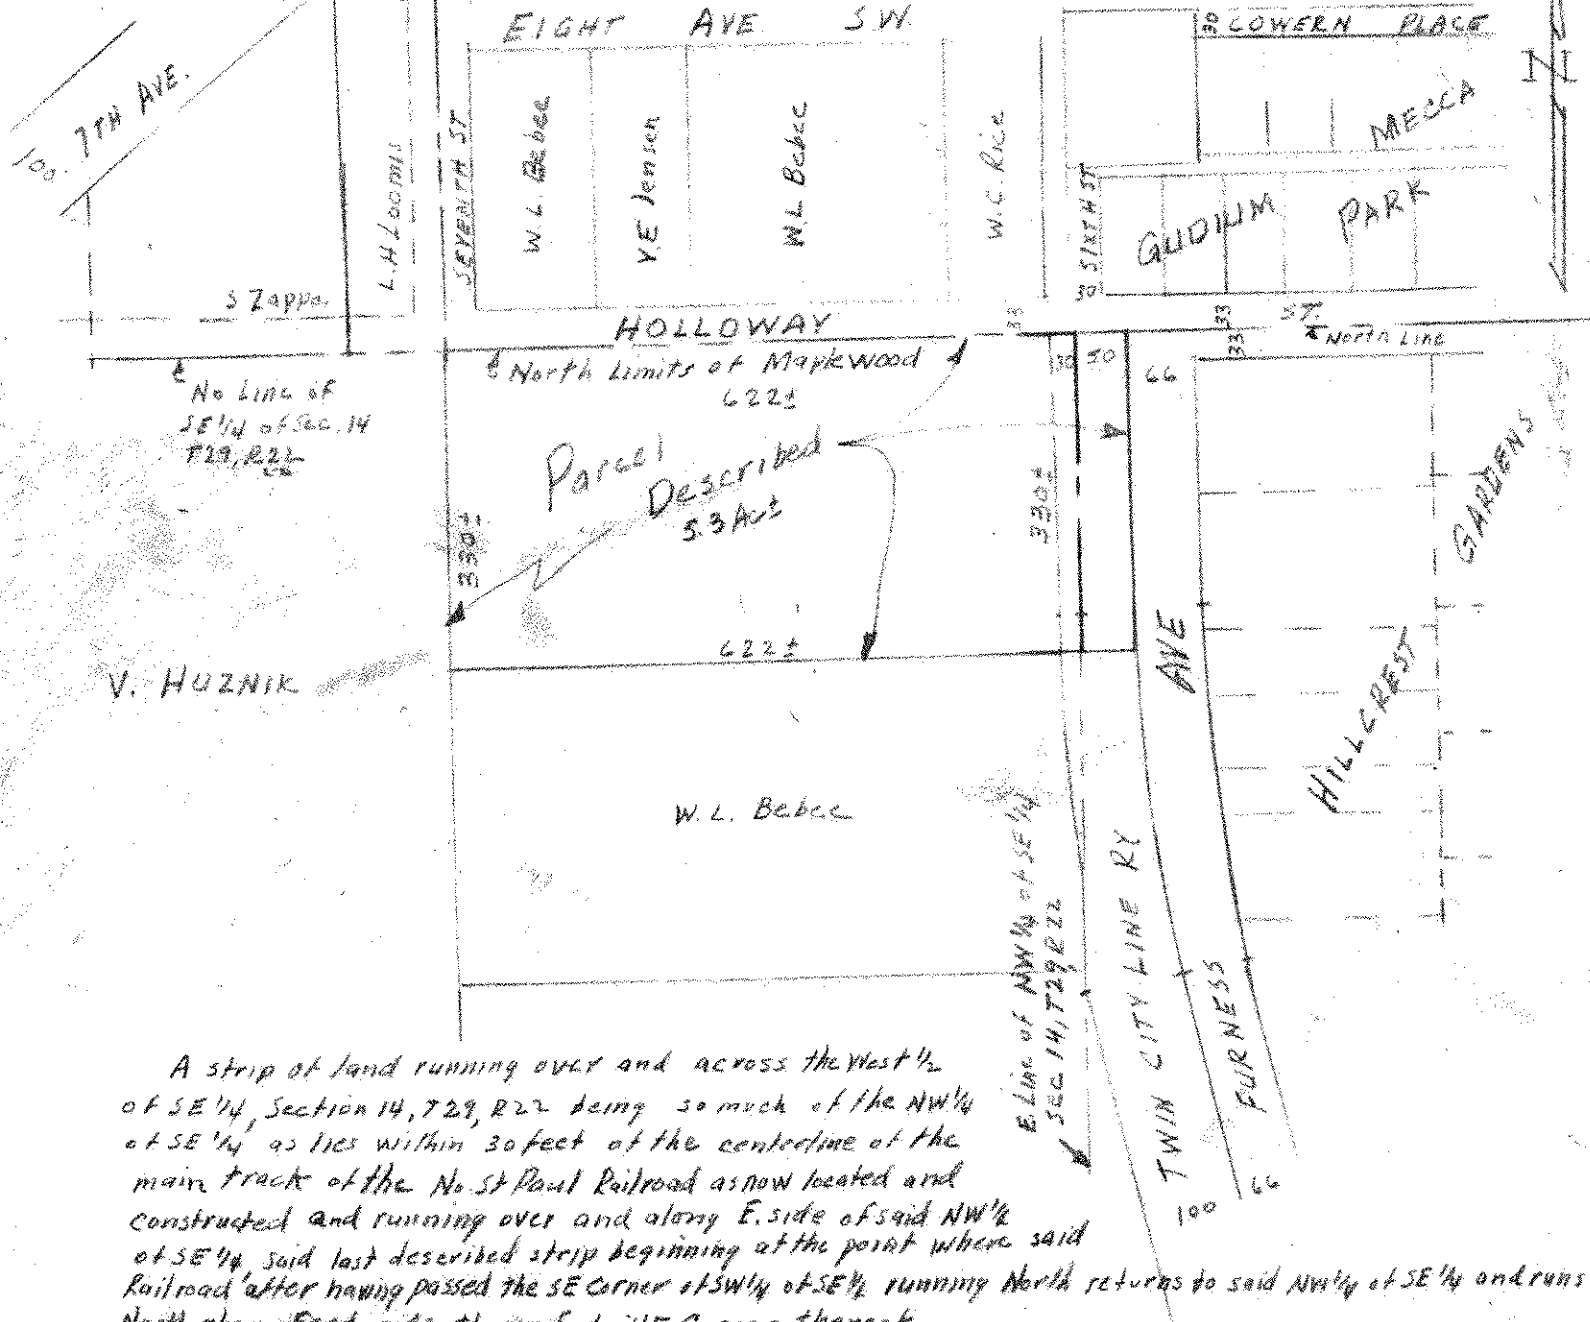 EIGHT AVE S.W.
30 LOWERN PLACE
100. 7TH AVE.
N
MECCA
L.H Loomis
SEVENTH ST
W. L. Bebee
V.E Jensen
W.L Bebee
W.C. Rice
30 SIXTH ST
GUDIUM PARK
S Zappa.
HOLLOWAY ST.
33
33
33
North Line
North Limits of Maplewood
622±
30 50
66
No Line of
SE 1/4 of Sec. 14
T29, R22
Parcel
Described
5.3 Ac±
330±
330±
622±
V. HUZNIK
W. L. Bebee
HILLCREST GARDENS
E. Line of NW 1/4 of SE 1/4
SEC 14, T29 R22
TWIN CITY LINE RY
100
FURNESS AVE
66
A strip of land running over and across the West 1/2
of SE 1/4, Section 14, T29, R22 being so much of the NW 1/4
of SE 1/4 as lies within 30 feet of the centerline of the
main track of the No. St Paul Railroad as now located and
constructed and running over and along E. side of said NW 1/4
of SE 1/4, said last described strip beginning at the point where said
Railroad after having passed the SE Corner of SW 1/4 of SE 1/4 running North returns to said NW 1/4 of SE 1/4 and runs
thereof